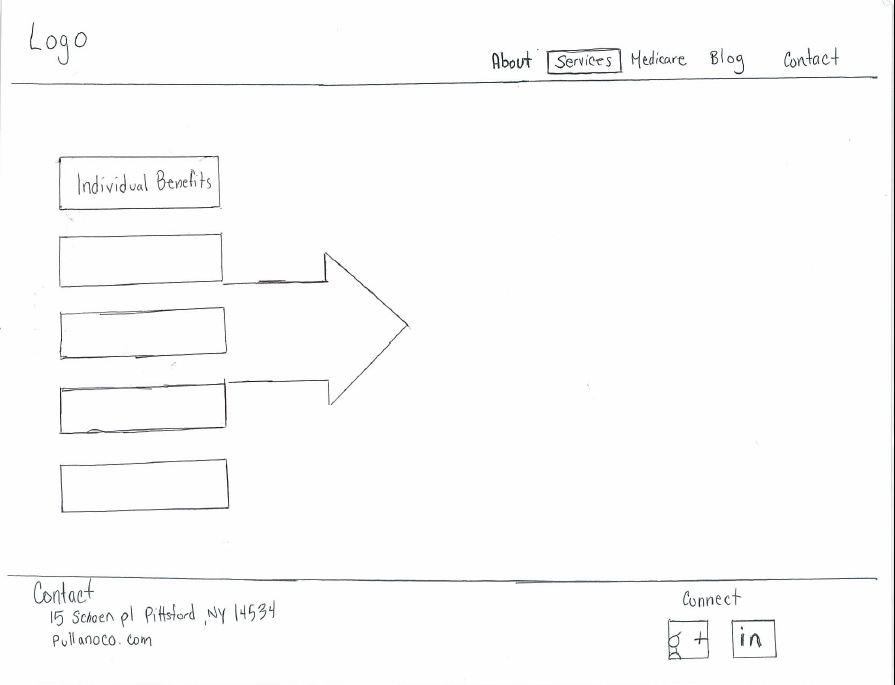 Logo
About Services Medicare Blog Contact
Individual Benefits
Contact
15 Schoen pl Pittsford, NY 14534
pullanoco.com
Connect
g+ in